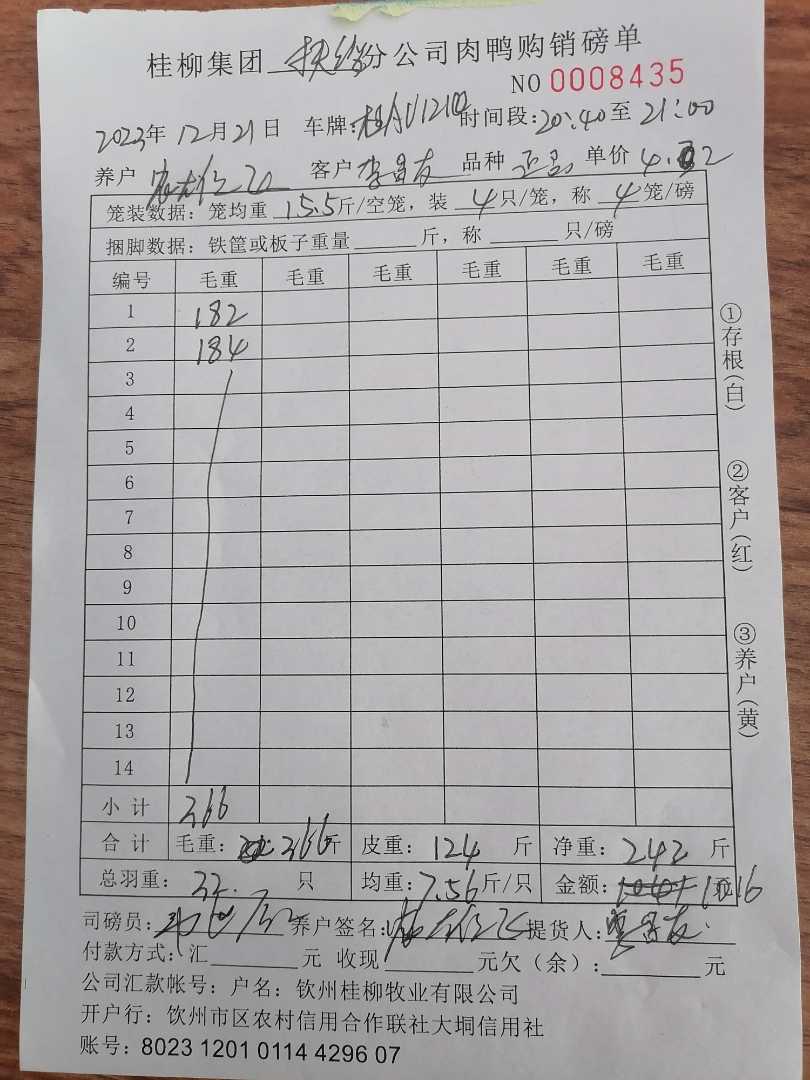 桂柳集团 扶绥分公司肉鸭购销磅单
NO 0008435
2023年 12月21日 车牌: 桂AU121 时间段:20:40至21:00
养户 客户 李昌友 品种 正品 单价 4.2
笼装数据: 笼均重 15.5斤/空笼, 装 4只/笼, 称 4笼/磅
捆脚数据: 铁筐或板子重量 斤, 称 只/磅
编号 毛重 毛重 毛重 毛重 毛重 毛重
1 182
2 184
3
4
5
6
7
8
9
10
11
12
13
14
小计 366
合计 毛重: 366斤 皮重: 124 斤 净重: 242 斤
总羽重: 32. 只 均重: 7.56斤/只 金额: 1016 元
司磅员: 养户签名: 提货人: 李昌友
付款方式: 汇 元 收现 元欠(余): 元
公司汇款帐号: 户名: 钦州桂柳牧业有限公司
开户行: 钦州市区农村信用合作联社大垌信用社
账号: 8023 1201 0114 4296 07
①存根(白)
②客户(红)
③养户(黄)